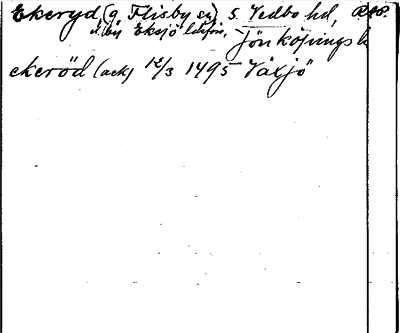 Ekeryd (g Flisby sn) S. Vedbo hd,
i. by Eksjö
Jönköpings l
ekeröd (ack) 12/3 1495 Växjö